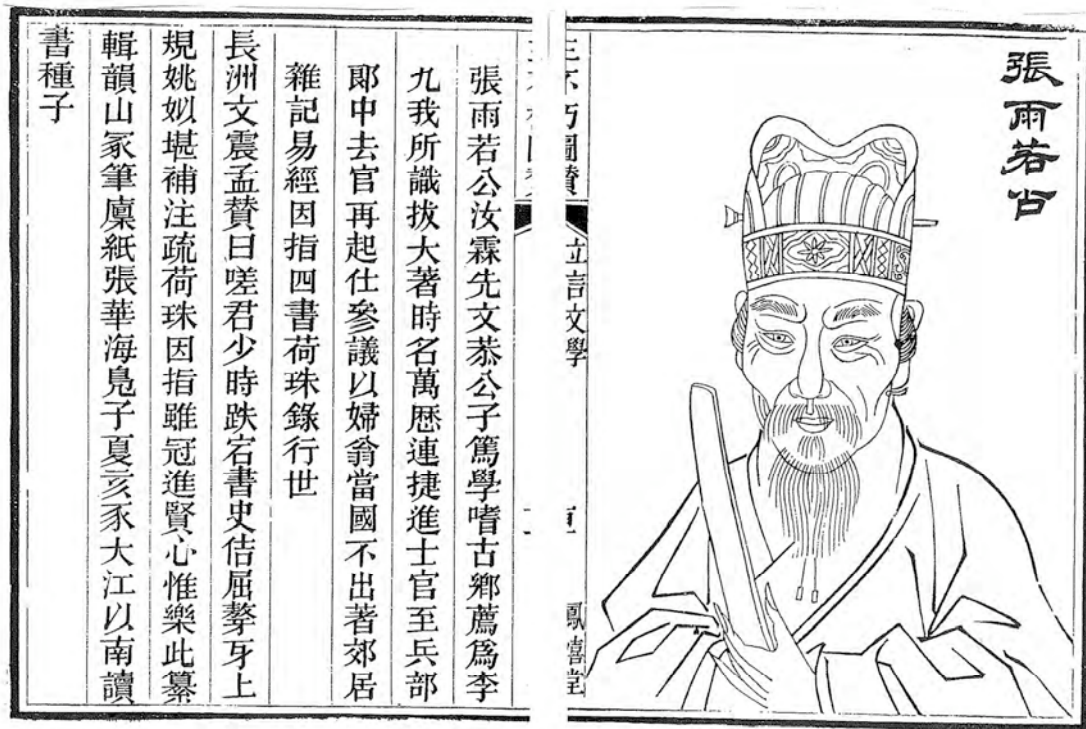 張雨若公
三不朽圖贊
立言文學
鳳嬉堂
張雨若公汝霖先文恭公子篤學嗜古鄉薦爲李
九我所識拔大著時名萬歷連捷進士官至兵部
郎中去官再起仕參議以婦翁當國不出著郊居
雜記易經因指四書荷珠錄行世
長洲文震孟贊曰嗟君少時跌宕書史佶屈聱牙上
規姚姒堪補注疏荷珠因指雖冠進賢心惟樂此纂
輯韻山冢筆廩紙張華海鳧子夏亥豕大江以南讀
書種子